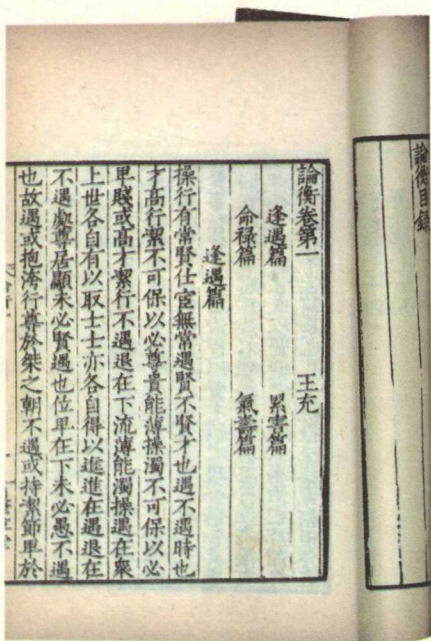 論衡目錄
論衡卷第一 王充
逢遇篇 累害篇
命祿篇 氣壽篇
逢遇篇
操行有常賢仕宦無常遇賢不賢才也遇不遇時也
才高行潔不可保以必尊貴能薄操濁不可保以必
卑賤或高才潔行不遇退在下流薄能濁操遇在衆
上世各自有以取士士亦各自得以進進在遇退在
不遇處尊居顯未必賢遇也位卑在下未必愚不遇
也故遇或抱洿行尊於桀之朝不遇或持潔節卑於